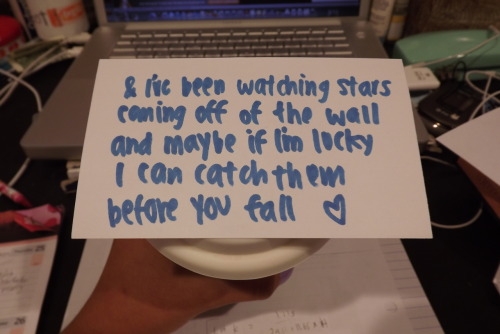 & i've been watching stars
coming off of the wall
and maybe if i'm lucky
I can catch them
before you fall ♡
26